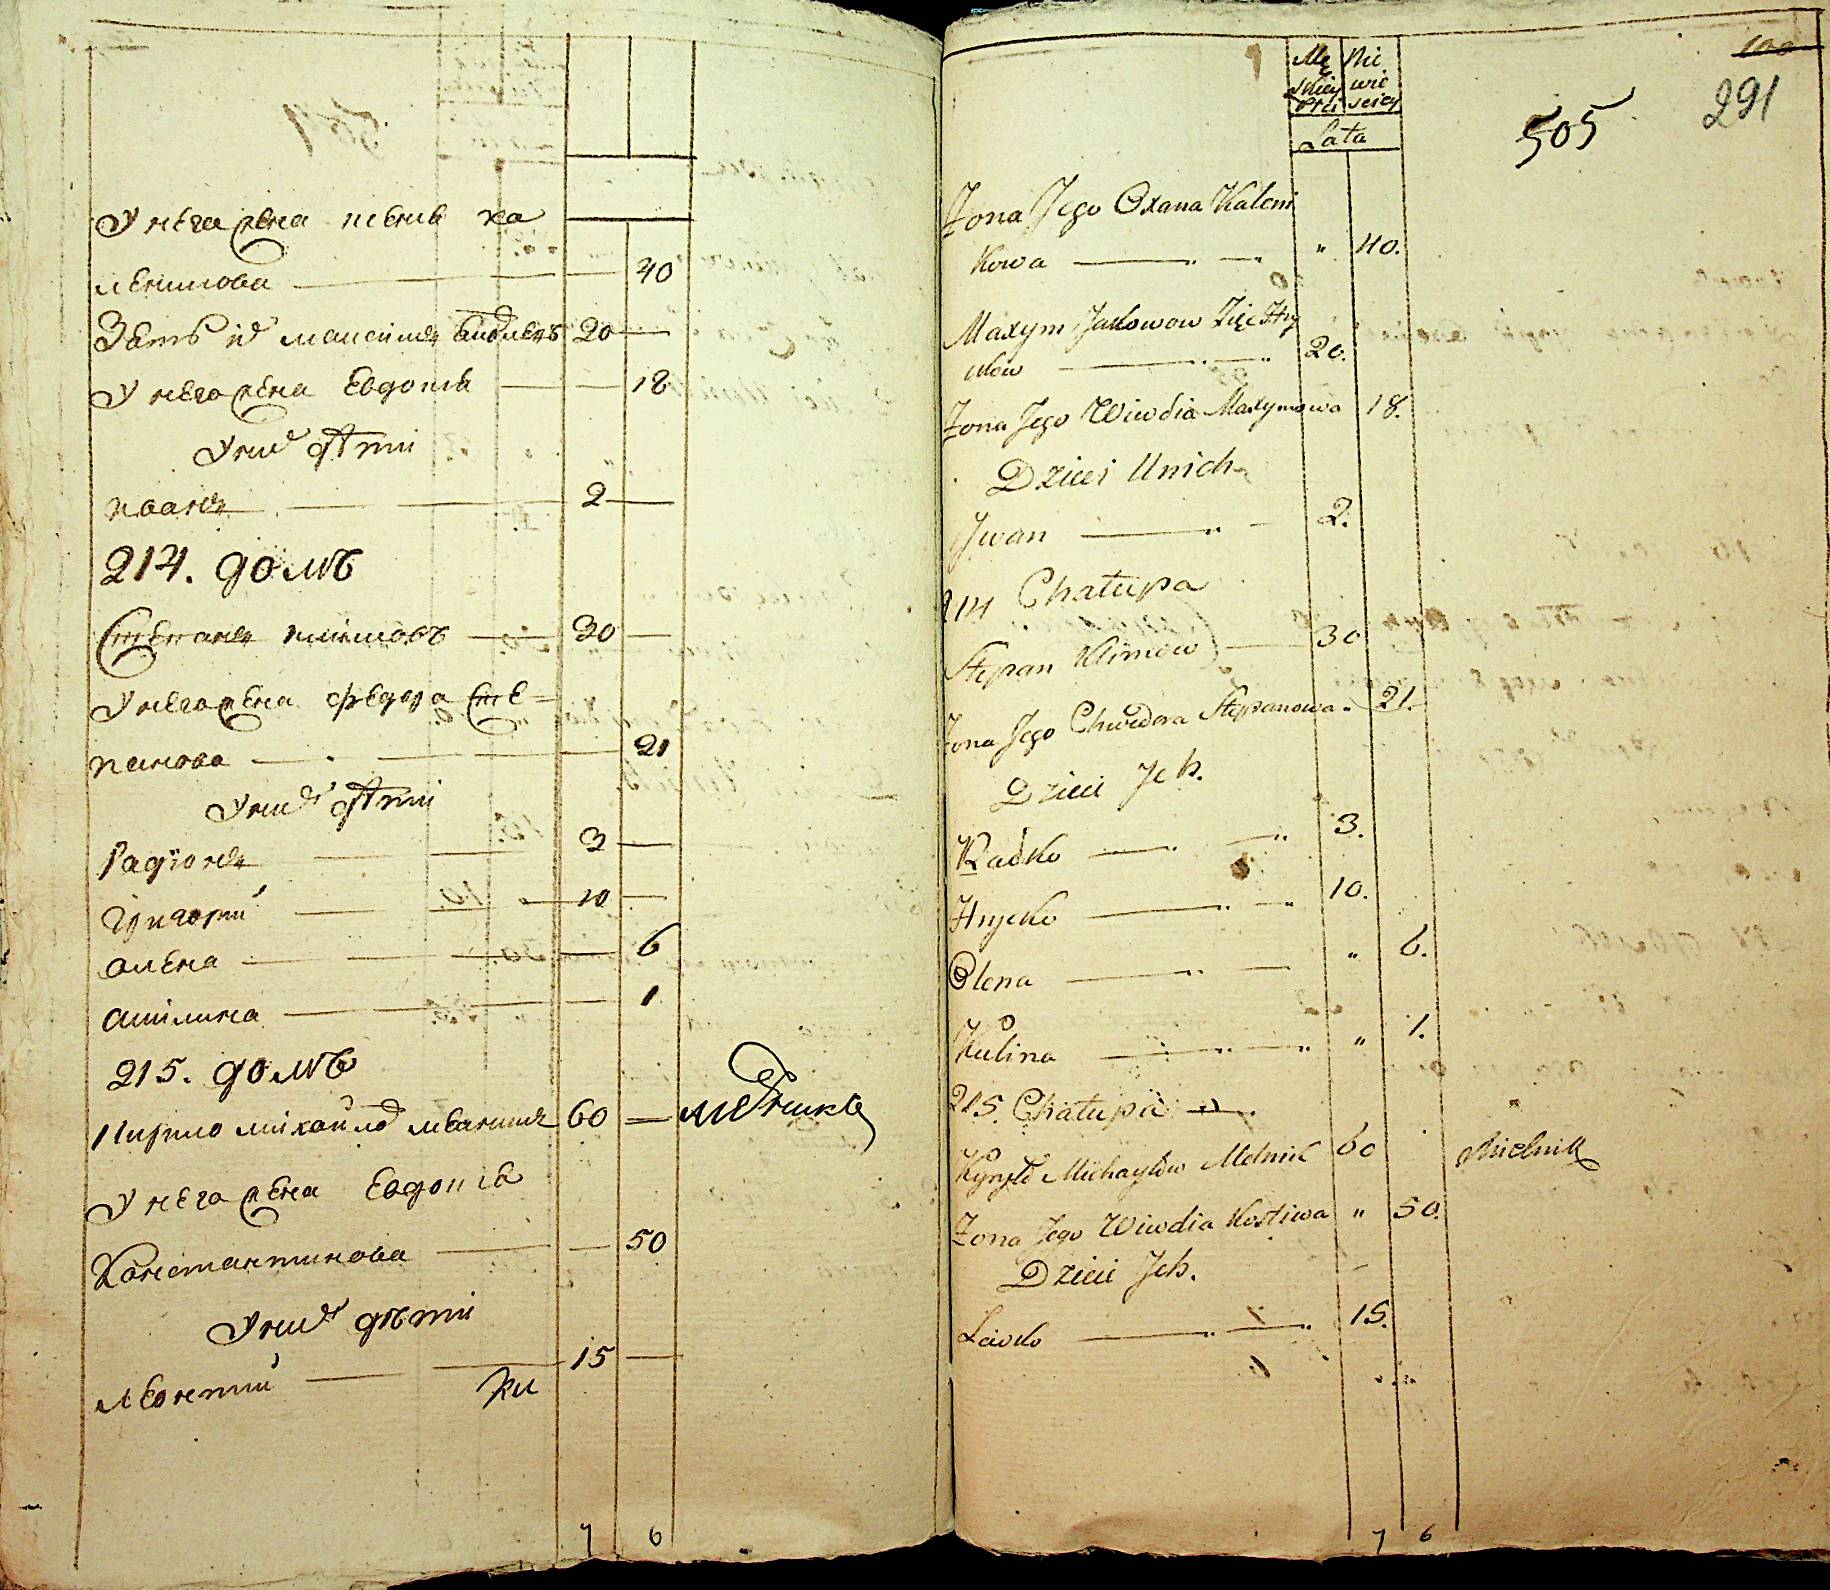 У него жена
40
Зать
20
У него жена Евдокия
18
У них дѣти
Иванъ
2
214. домъ
Степанъ Климовъ
30
У него жена Федора Сте-
панова
21
У них дѣти
Радионъ
3
Григорий
10
Алена
6
Акилина
1
215. домъ
Кирило Михайлов
60
У него жена Евдокия
Константинова
50
У них дѣти
Леонтий
15
7 6
100
291
505
Mę Nie
skiey wie
Płci sciey
Lata
Żona Jego Oxana Kaleni
kowa " 40.
Maxym Jakowow Zięć Hry
ckow 20.
Żona Jego Wiwdia Maxymowa 18.
Dzieci Unich
Jwan 2.
214 Chałupa
Stepan Klimow 30
Żona Jego Chwedora Stepanowa " 21.
Dzieci Jch.
Radko 3.
Hrycko 10.
Olena " 6.
Kulina " 1.
215. Chałupa
Kyryło Michayłow Melnik 60 Mielnik
Żona Jego Wiwdia Kostiwa " 50.
Dzieci Jch.
Lewko 15.
7 6